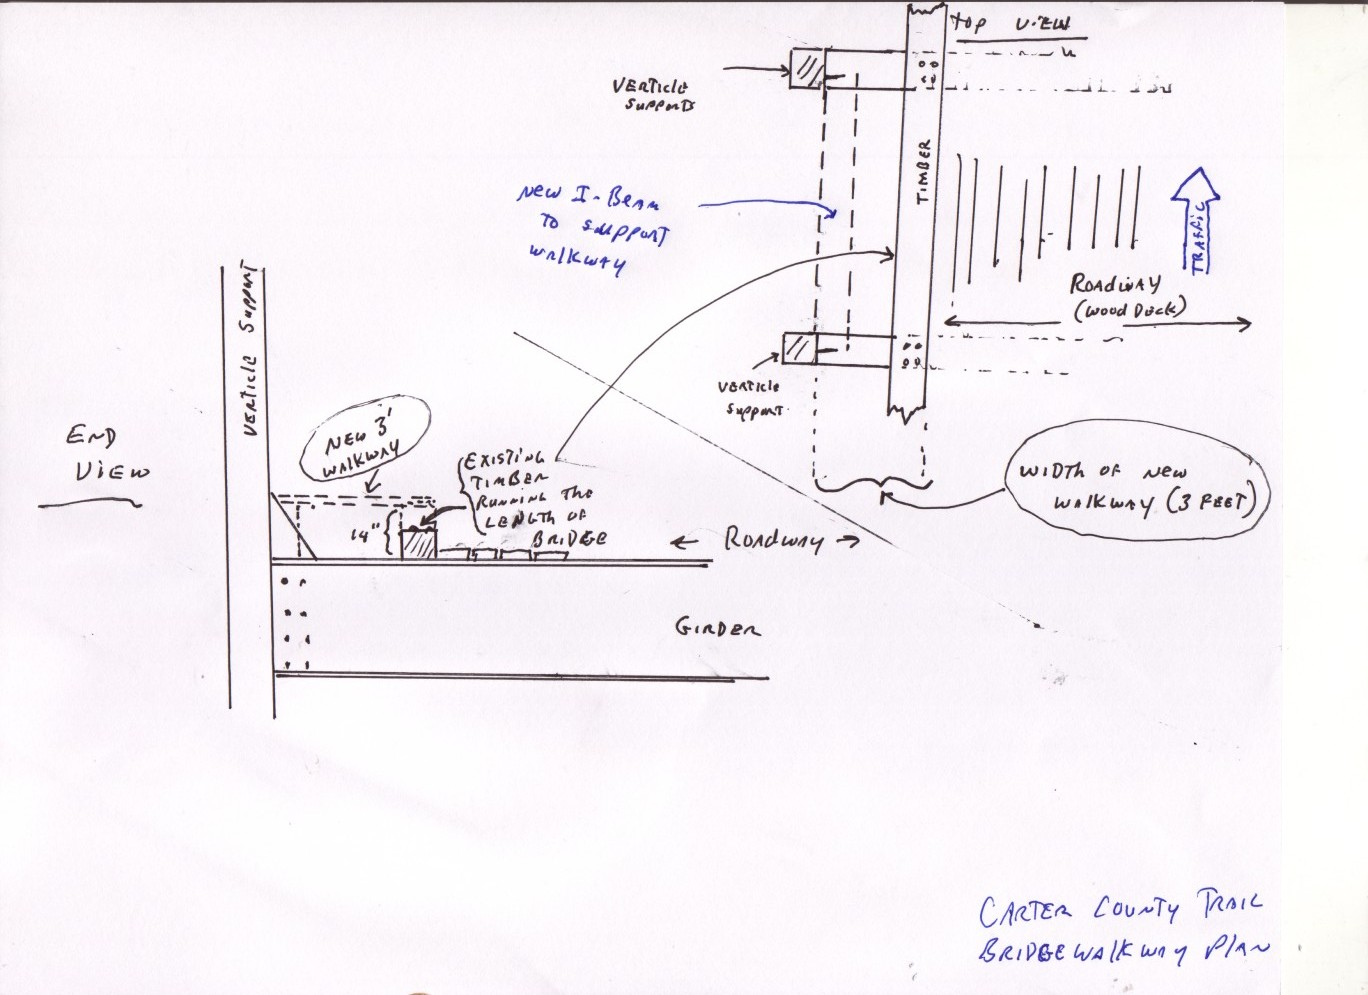 TOP VIEW
VERTICLE
SUPPORTS
TIMBER
NEW I-BEAM
TO SUPPORT
WALKWAY
TRAFFIC
ROADWAY
(WOOD DECK)
VERTICLE
SUPPORT
WIDTH OF NEW
WALKWAY (3 FEET)
VERTICLE SUPPORT
END
VIEW
NEW 3'
WALKWAY
EXISTING
TIMBER
RUNNING THE
LENGTH OF
BRIDGE
ROADWAY
GIRDER
CARTER COUNTY TRAIL
BRIDGE WALKWAY PLAN